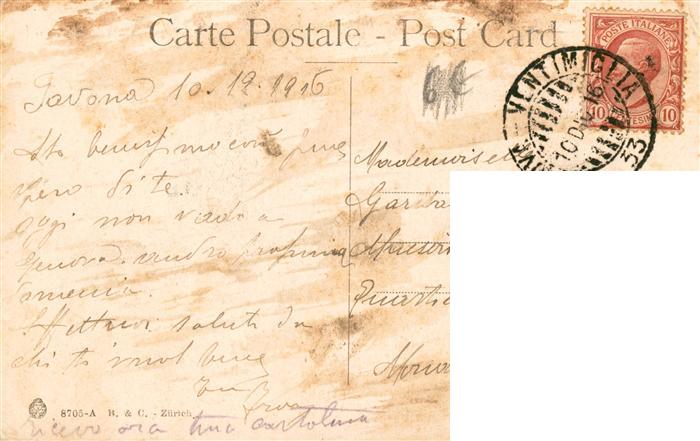 Carte Postale - Post Card
POSTE ITALIANE
10 CENTESIMI 10
VENTIMIGLIA
10 DIC 16
33
Savona 10.12.1916
Sto benissimo così pure
spero di te.
oggi non vado a
Genova. andrò prossima
Domenica.
Affettuosi saluti da
chi ti vuol bene
Mademoisel
Quarti
8705-A B. & C. - Zürich.
ricevo ora tua cartolina